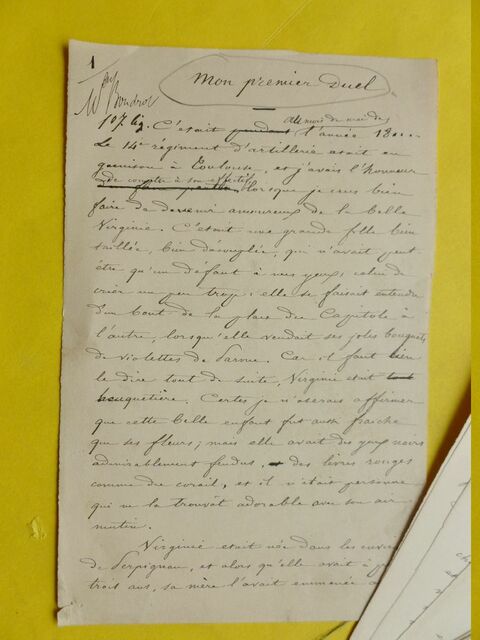 1
Mon premier Duel
107 lig. C'était pendant au mois de mai de l'année 18....
Le 14e régiment d'artillerie était en
garnison à Toulouse, et j'avais l'honneur
de compter à son effectif
lorsque je crus bien
faire de devenir amoureux de la belle
Virginie. C'était une grande fille bien
taillée, bien découplée, qui n'avait peut-
être qu'un défaut à nos yeux, celui de
crier un peu trop : elle se faisait entendre
d'un bout de la place du Capitole à
l'autre, lorsqu'elle vendait ses jolis bouquets
de violettes de Parme. Car il faut bien
le dire tout de suite, Virginie était tout
bouquetière. Certes je n'oserais affirmer
que cette belle enfant fut aussi fraîche
que ses fleurs ; mais elle avait des yeux noirs
admirablement fendus, et des lèvres rouges
comme du corail, et il n'était personne
qui ne la trouvât adorable avec son air
mutin.
Virginie était née dans les
de Perpignan, et alors qu'elle avait à
trois ans, sa mère l'avait emmenée